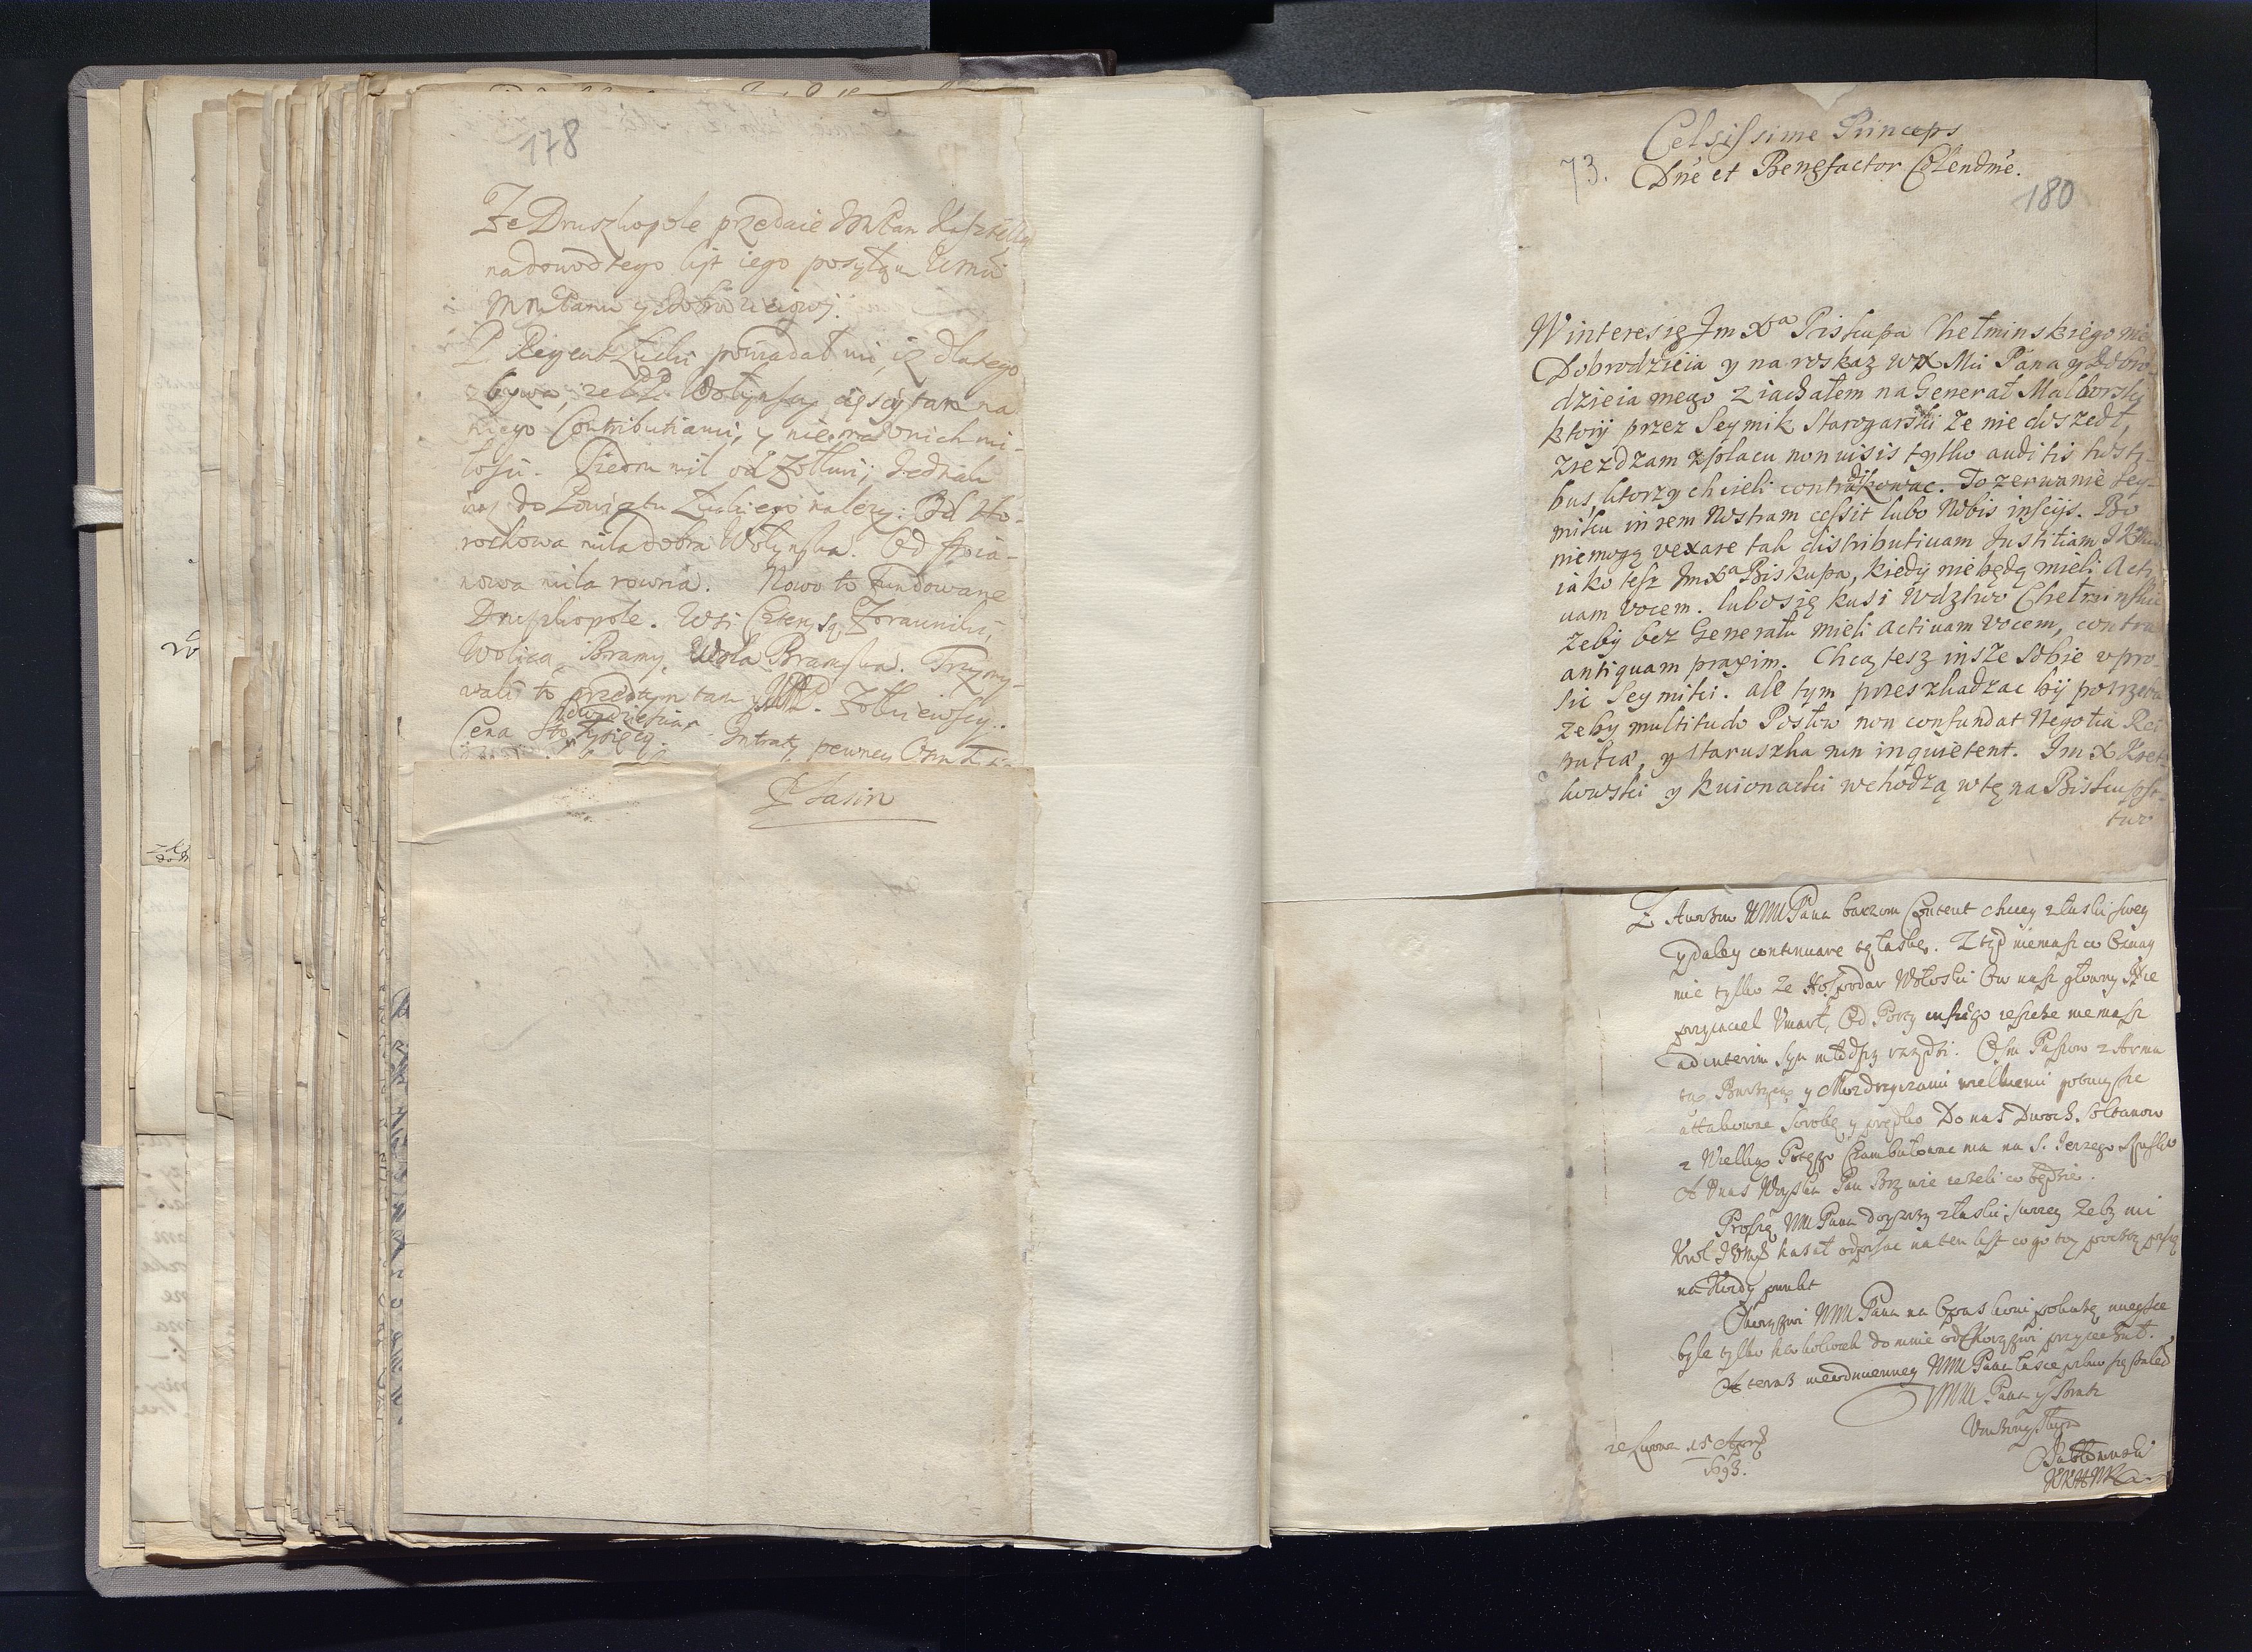 178
Ze Druszkopole przedaie JmPan Kasztella
na dowod tego list iego posyłam WMci
MMPanu y Dobrodzieiowi.
P. Regent Łucki powiadał mi, ię dlatego
zbywa, ze PP. Wołynscy cięszy tam na
niego Contributiami, y nie ma wnich mi-
łosci. Siedm mil od Zołkwi, Jednak
do Powiatu Łuckiego nalezy: Od Ho-
rochowa mila dobra Wołynska. Od
nowa mila rowna. Nowo to fundowane
Druszkopole. Wsi Cztery są, Zorawniki,
Wolica, Bramy, Wola Bramska. Trzymy-
wali to przedtym tam Zołkiewscy.
Cena Sto dwadziescia Tysięcy. Intraty pewney
P Sasin
73.
Celsissime Princeps
Dne et Benefactor Colendme.
180
W interesie Jm Xa Biskupa Chełminskiego mie
Dobrodzieia y na roskaz WX Mci Pana y Dobro-
dzieia mego ziachałem na Generał Malborski
ktory przez Seymik Starogarski ze nie doszedł,
zrezdzam z placu non visis tylko auditis hosti-
bus, ktorzy chcieli contradikowac. To zerwanie sey-
miku in rem Nostram cessit lubo Nobis insciis. Bo
niemogą vexare tak distributivam Justitiam JKM
iako tesz Jm Xa Biskupa, kiedy nie będą mieli Acti-
uam Vocem. lubo się kusi Wdztwo Chełminskie
zeby bez Generału mieli activam Vocem, contra
antiquam praxim. Chcą tesz insze sobie vpro-
sic Seymiki. ale tym przeszkadzac by potrzeba
zeby multitudo Posłow non confundat Negotia Rei
, y Staruszka non inquietent. Jm X Kret-
kowski y Kuionacki wchodzą w tę na Biskupst-
two
Z Awizow WMMPana barzom Content chciey z łaski swey
y daley continuare tę łaskę. Z tąd niemasz co Oznay
mic tylko ze Hospodar Wołoski Ow nasz głowny Nie
przyiaciel Vmarł, Od Porty inszego ieszcze niemasz
ad interim Syn młodszy rządzi. Osm Paszow z Arma
tą Burzącą y Mozdzyrzami wielkiemi gotuią sie
attakowac Sorokę y prędko Do nas Dwoch Sołtanow
z Wielką Potęgą Czambułowac ma na S. Jerzego
A Vnas Woyska Pan Bog wie iezeli co będzie.
Proszę WM Pana doyrzy z łaski swoiey zeby mi
Krol JeoMsc kazał odpisac na ten list co go tey poczty piszę
na Kozdy punkt
WMM Pana na
byle tylko ktokolwiek do mnie przyiechał.
A teraz nieodmienney WMM Pana łasce pilno się zalecam
WMM Pana y Brata
Vnizony Sługa
Jabłonowski
KKHWK
ze Lwowa 15 Apryl
1693.